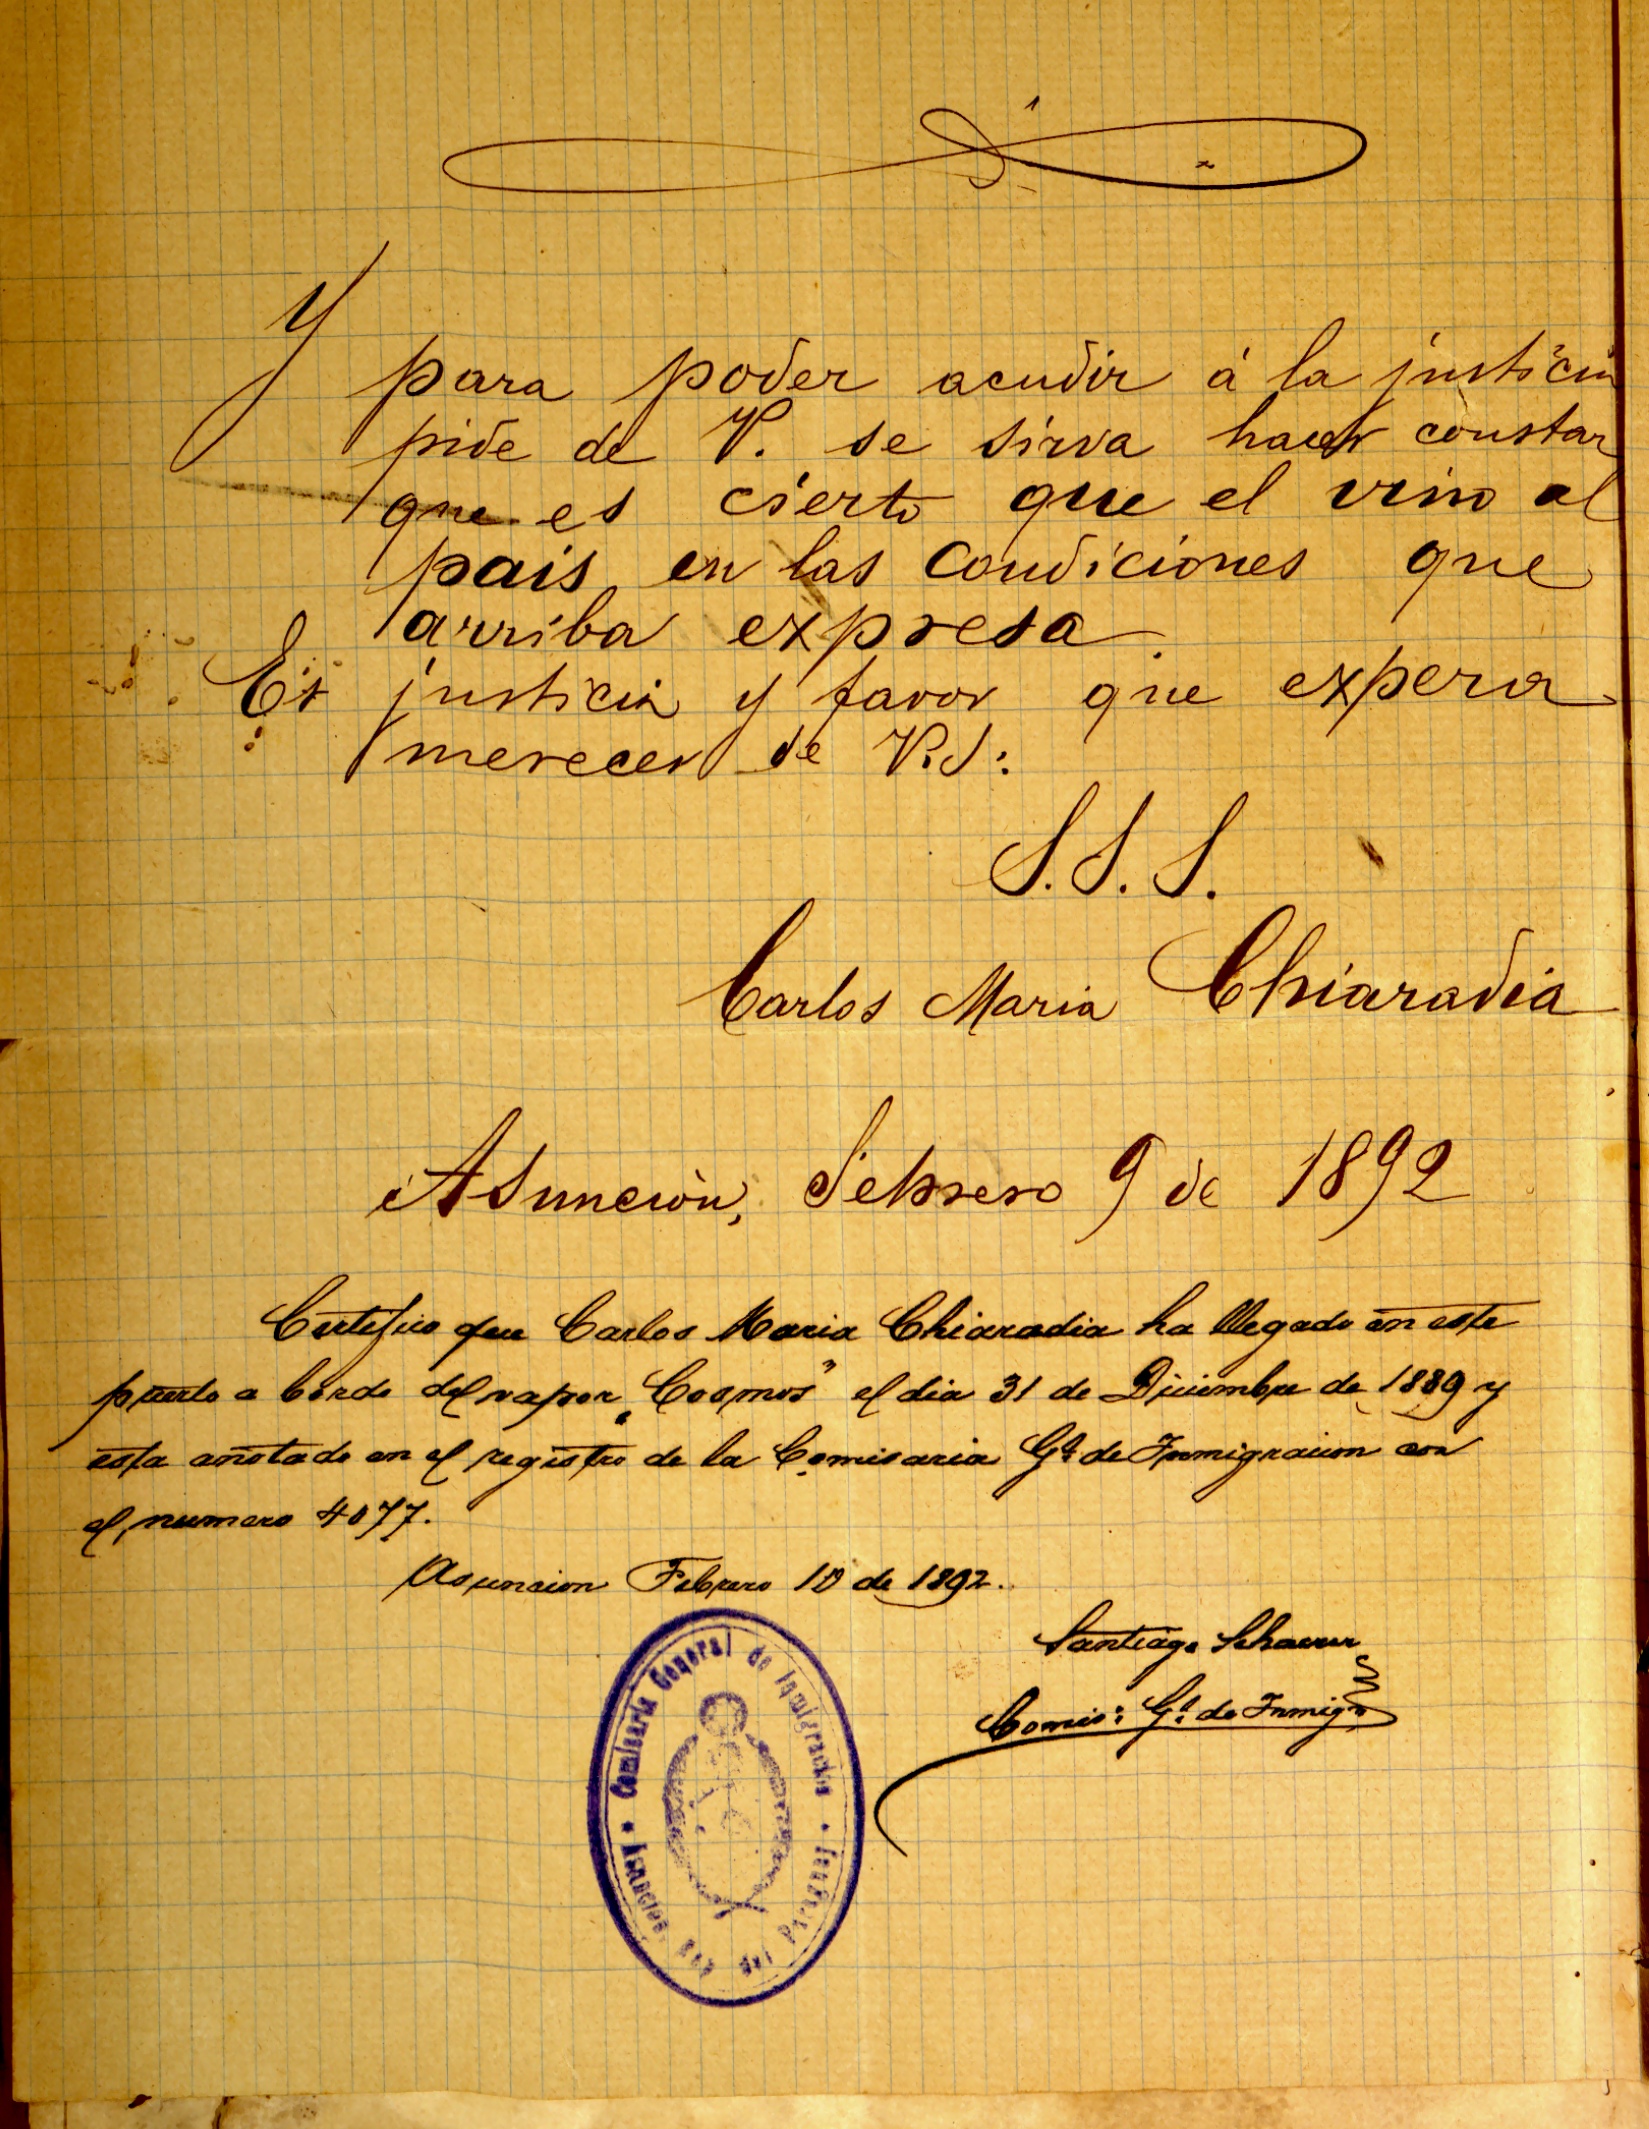 Y para poder acudir á la justicia
pide de V. se sirva hacer constar
que es cierto que el vino al
pais en las condiciones que
arriba expresa.
Es justicia y favor que expera
merecer de V.S:
S.S.S.
Carlos Maria Chiaradia
Asunción, Febrero 9 de 1892
Certifico que Carlos Maria Chiaradia ha llegado en este
puerto a bordo del vapor "Cosmos" el dia 31 de Diciembre de 1889 y
esta anotado en el registro de la Comisaria Gl. de Inmigracion con
el numero 4077.
Asuncion Febrero 10 de 1892.
Santiago Schaerer
Comis: Gl. de Inmign
Comisaria General de Inmigración
Asunción, Rep. del Paraguay